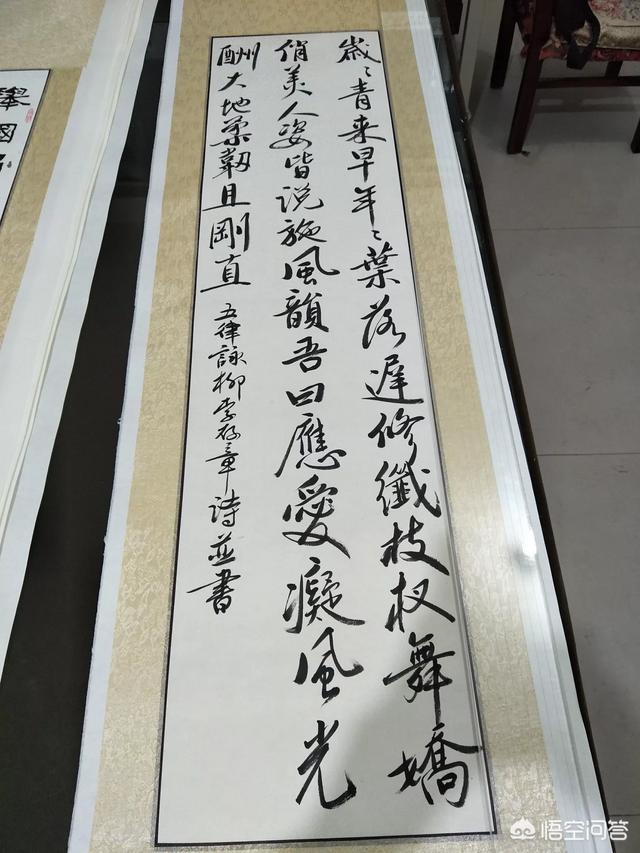 歲〻青来早年〻葉落遲修纖枝杈舞嬌
俏美人姿皆说旋風韻吾曰應愛癡風光
酬大地柔韌且剛直
五律詠柳李章詩並書
舉國
悟空问答